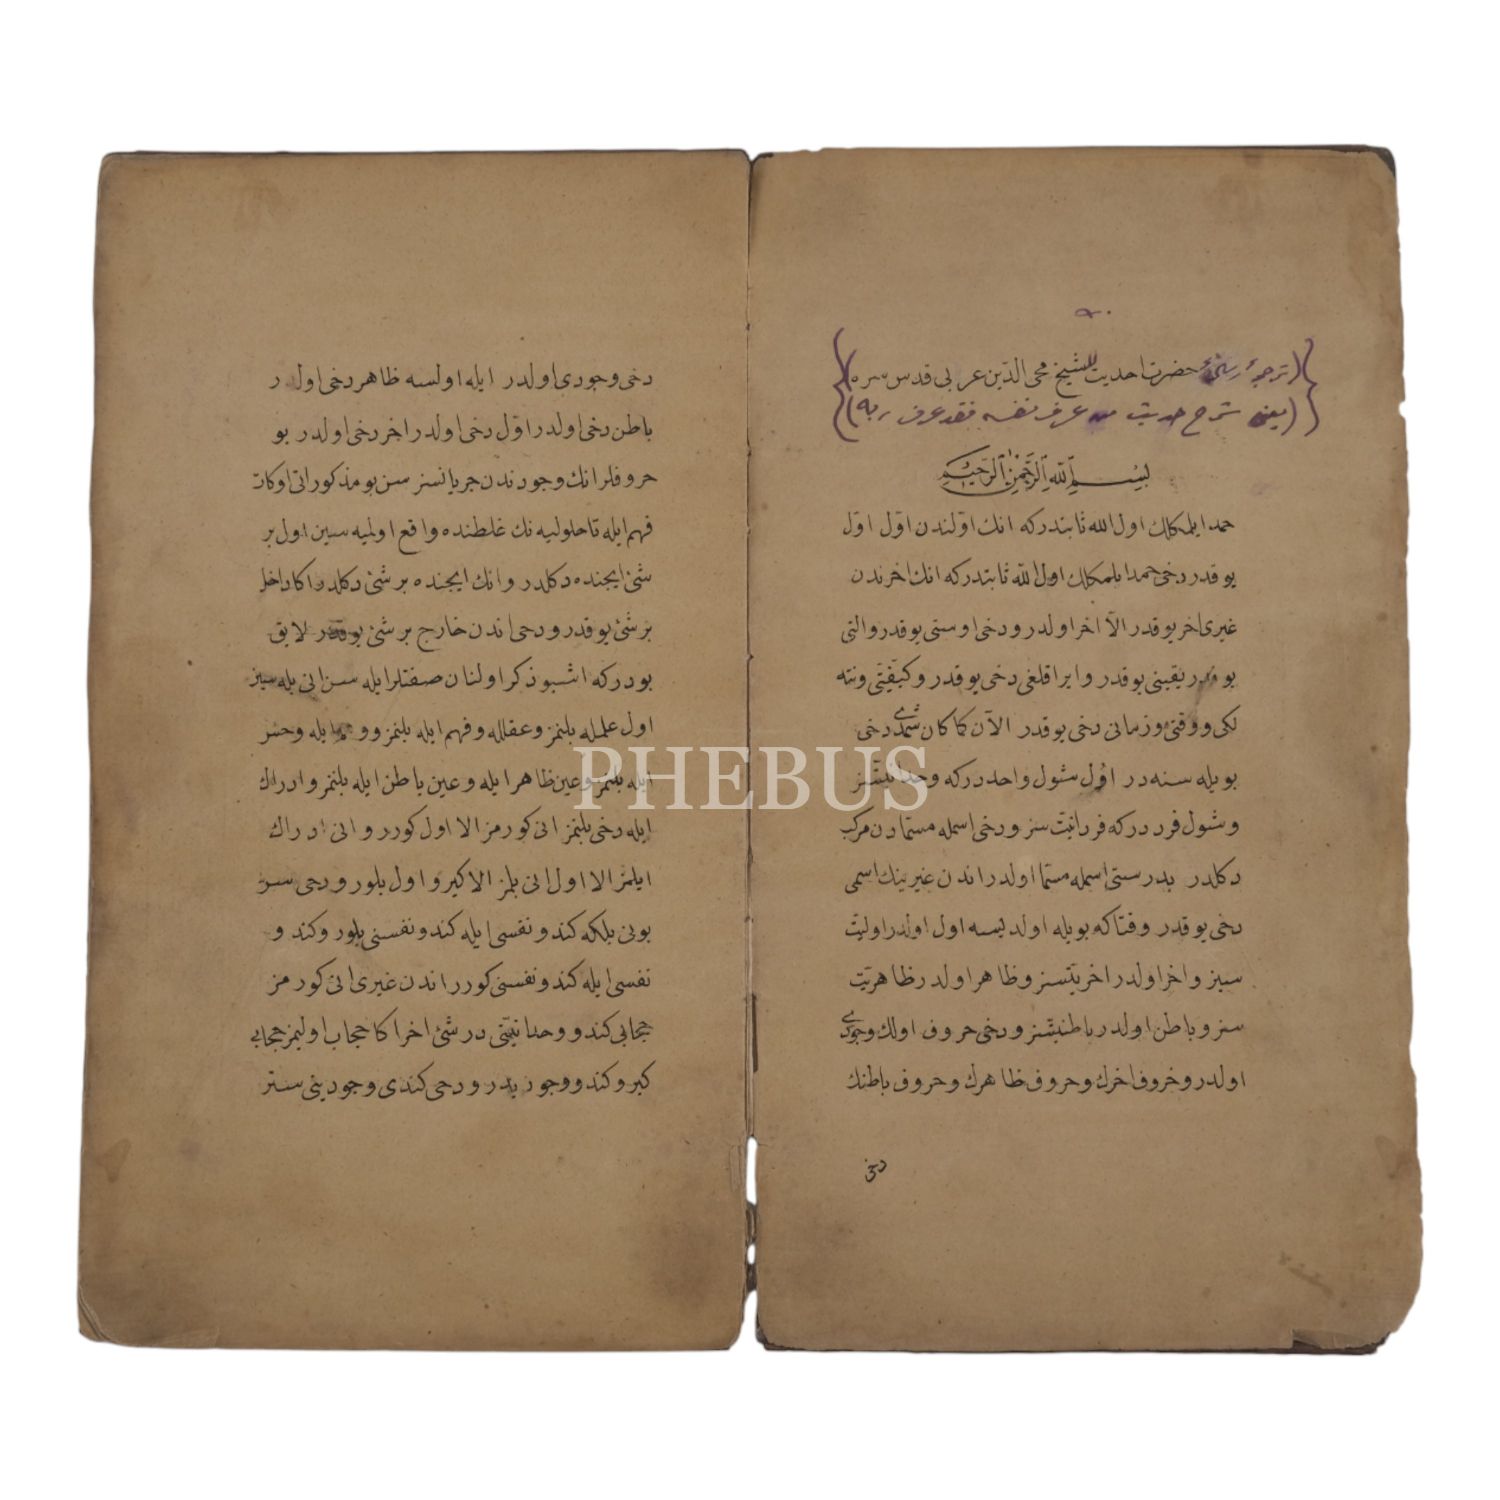 (ترجمۀ رسالۀ حضرت احديت للشيخ محى الدين عربى قدس سره)
(يعنى شرح حديث من عرف نفسه فقد عرف ربه)
بسم الله الرحمن الرحيم
حمد ايلمكلك اول الله ثابتدركه انك اولندن اول اول
يوقدر دخى حمد ايلمكلك اول الله ثابتدركه انك اخرندن
غيرى اخر يوقدر الا اخر اولدر و دخى اوستى يوقدر والتى
يوقدر يقينى يوقدر وايراقلغى دخى يوقدر وكيفيتى ونته
لكى ووقتى وزمانى دخى يوقدر الآن كما كان شمدى دخى
بويله سنه در اول شول واحددركه وحدانيتسز
وشول فرددركه فردانيت سز ودخى اسمله مسمادن مركب
دكلدر بدرستى اسمله مسما اولدر اندن غيرينك اسمى
دخى يوقدر وقتاكه بويله اولديسه اول اولدر اوليت
سيز واخر اولدر اخريتسز وظاهر اولدر ظاهريت
سز وباطن اولدر باطنيتسز ودخى حروف اولك وجودى
اولدر وحروف اخرك وحروف ظاهرك وحروف باطنك
دخى
دخى وجودى اولدر ايله اولسه ظاهر دخى اولدر
باطن دخى اولدر اول دخى اولدر اخر دخى اولدر بو
حروفلر انك وجودندن جريانسز سن بو مذكوراتى اوكات
فهم ايله تا حلوليه نك غلطنده واقع اولميه سين اول بر
شئ ايچنده دكلدر وانك ايچنده بر شئ دكلدر اكا داخل
بر شئ يوقدر ودخى اندن خارج بر شئ يوقدر لايق
بودركه اشبو ذكر اولنان صفتلر ايله سن انى بيله سيز
اول علمله بلنمز وعقلله وفهم ايله بلنمز ووهم ايله وحس
ايله بلنمز وعين ظاهر ايله وعين باطن ايله بلنمز وادراك
ايله دخى بلنمز انى كورمز الا اول كورر وانى ادراك
ايلمز الا اول انى بلمز الا كيرو اول بلور ودخى سن
بونى بلكه كندو نفسى ايله كندو نفسنى بلور وكندو
نفسى ايله كندو نفسنى كورر اندن غيرى انى كورمز
حجابى كندو وحدانيتى در شئ اخر اكا حجاب اوليمز حجابى
كيرو كندو وجوديدر ودخى كندى وجودينى ستر
PHEBUS